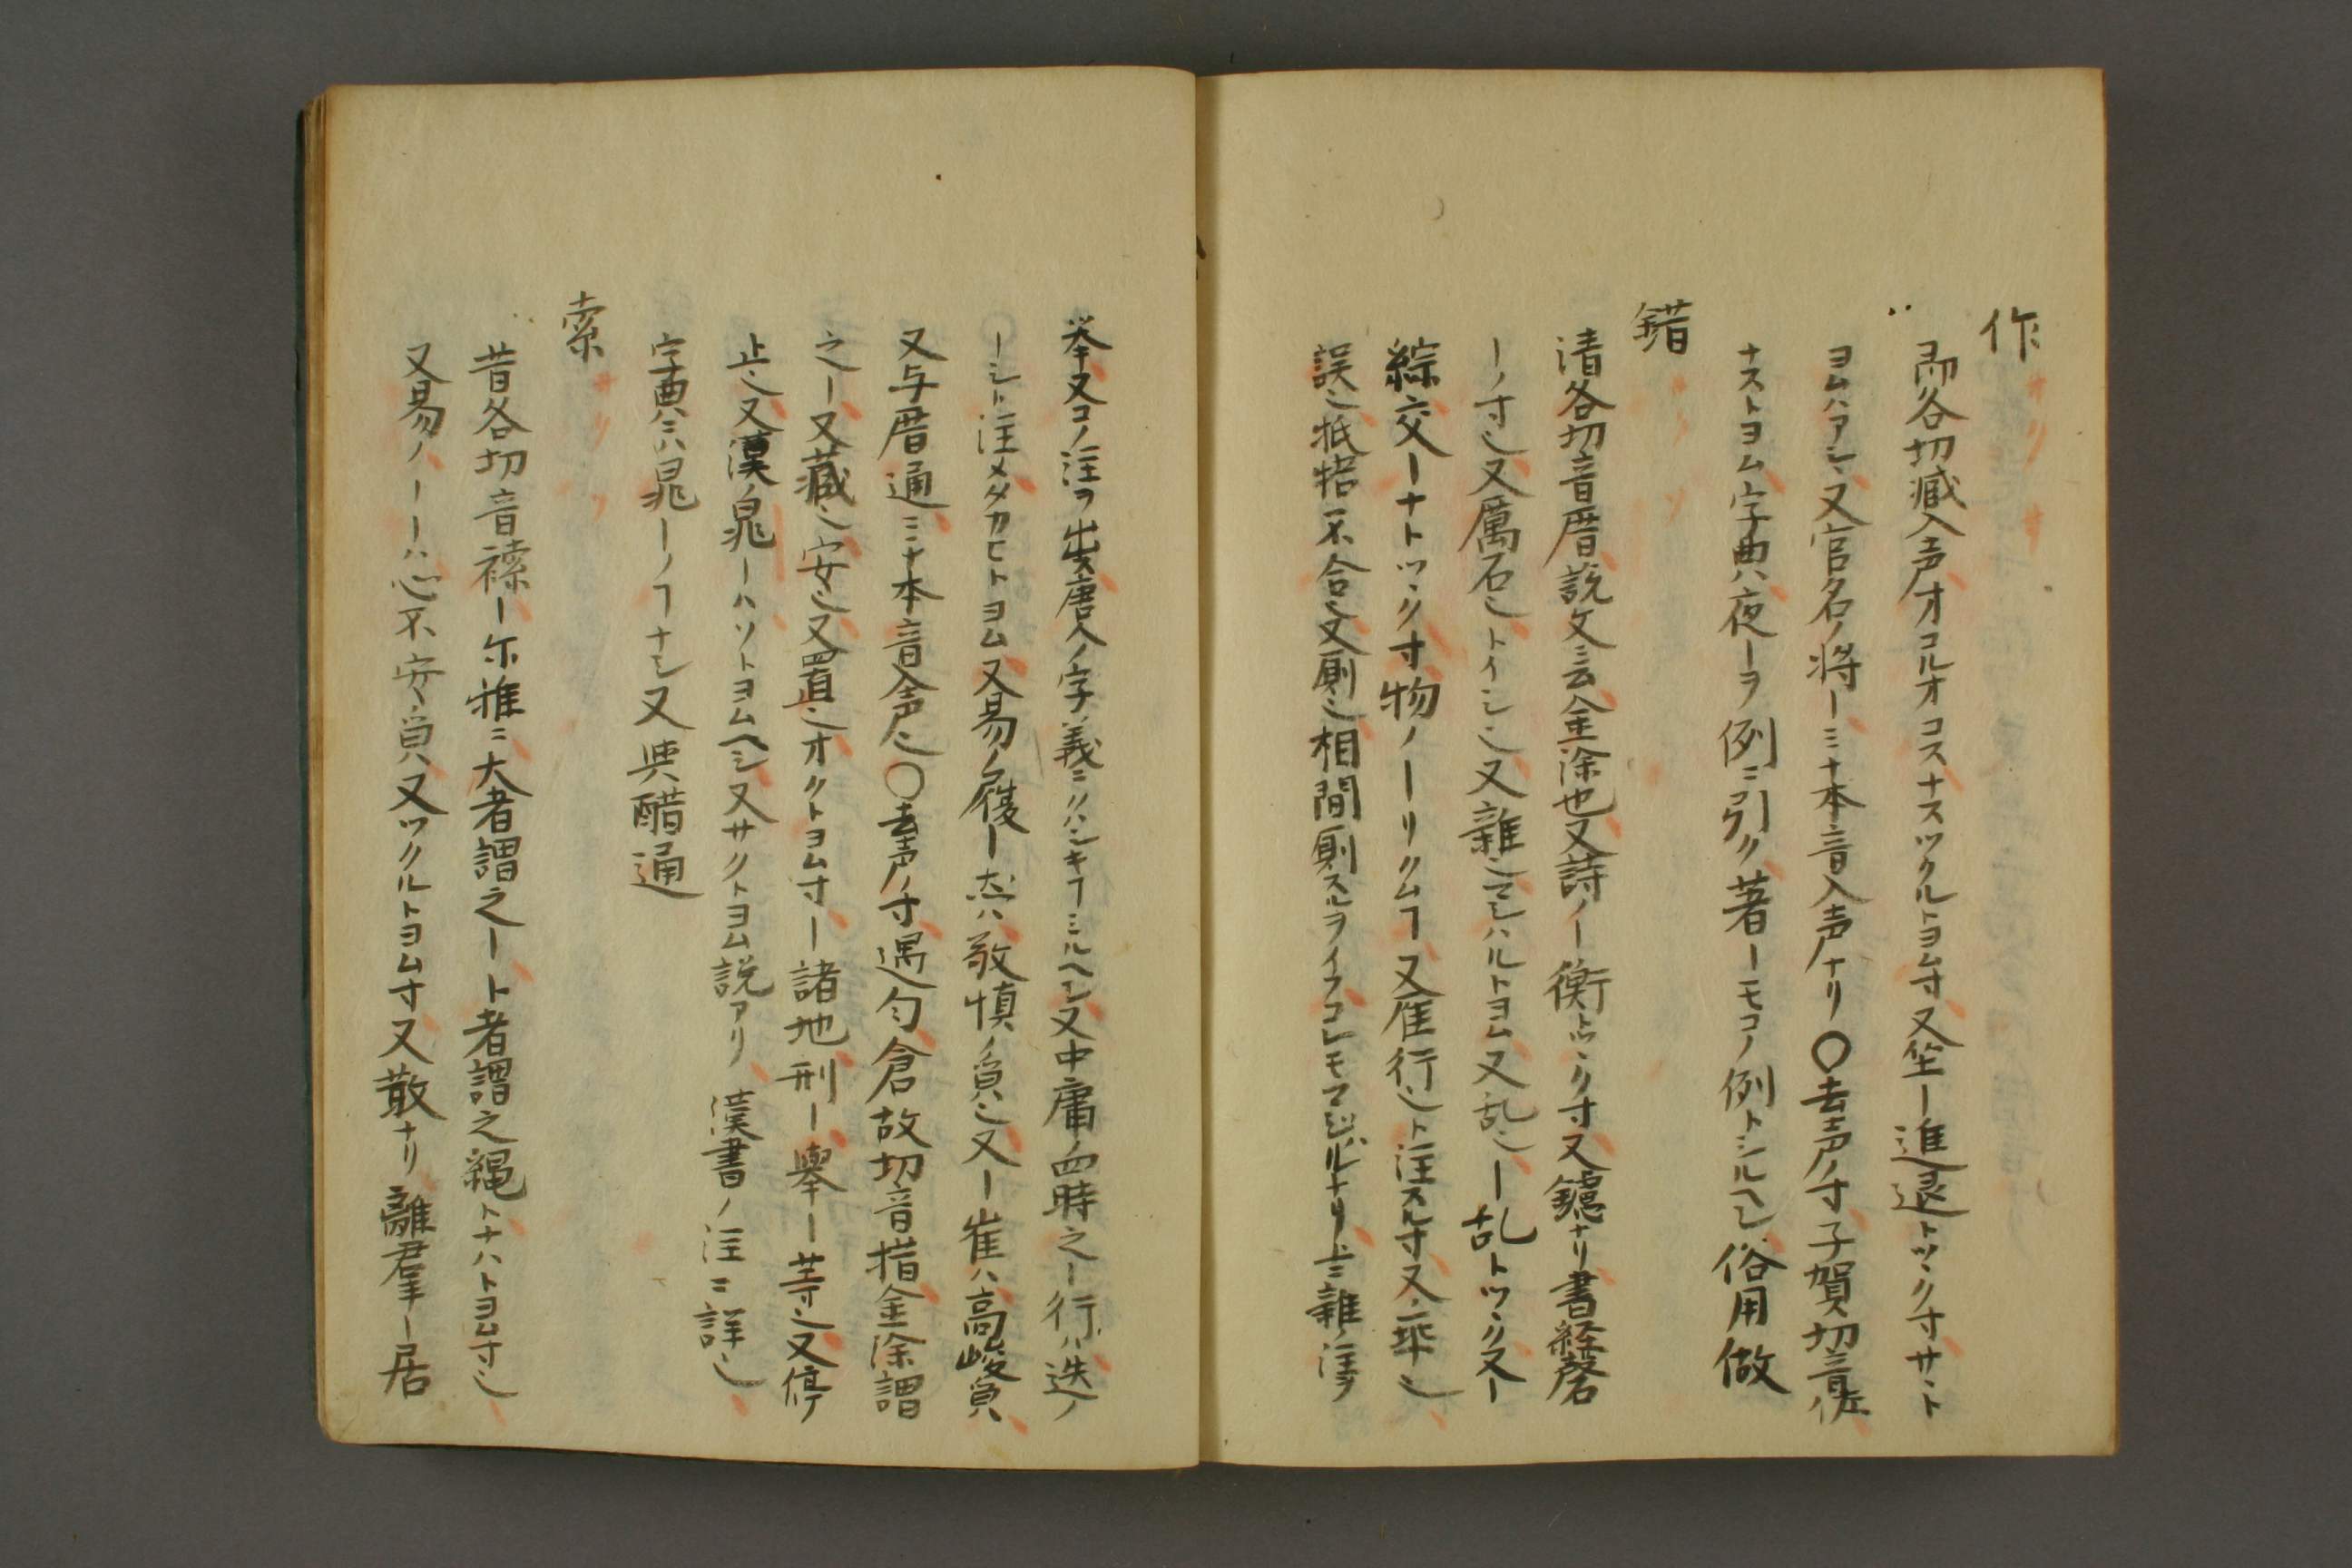 作
即各切臧入声オコルオコスナスツクルトヨム寸又坐ー進退トツヽク寸サヽト
ヨムハアシヽ又官名ノ将ーミナ本音入声ナリ〇去声ノ寸子賀切音佐
ナストヨム字典ハ夜ーヲ例ニ引ク著ーモコノ例トシルヘシ俗用做
錯
清各切音厝説文云金涂也又詩ノー衡トツヽク寸又鑢ナリ書経磬
ーノ寸也又厲石也トイシ也又雜也マシハルトヨム又乱也ー乱トツヽク又ー
綜交ーナトツヽク寸物ノーリクムヿ又隹行也ト注スル寸又乖也
誤也抵牾不合也又厠也相間厠スルヲイフコレモマジハルナリ上ニ雜ノ注ヲ
挙又コノ注ヲ出又唐人ノ字義ニクハシキヿミルヘシ又中庸ノ四時之ー行ハ迭ノ
ーシト注メタカヒトヨム又易ノ履ー然ハ敬慎ノ皃也又ー崔ハ高峻皃
又与厝通ミナ本音入声也〇去声ノ寸遇匀倉故切音措金涂謂
之ー又蔵也安也又置也オクトヨム寸ー諸地刑ー舉ー等也又停ノ
止也又漢ノ鼂ーハソトヨムヘシ又サクトヨム説アリ漢書ノ注ニ詳也
字典ニハ鼂ーノヿナシ又與醋通
索
サク
昔各切音𥛨ー尓雅ニ大者謂之ート者謂之縄トナハトヨム寸也
又易ノーーハ心不安皃又ツクルトヨム寸又散ナリ離群ー居